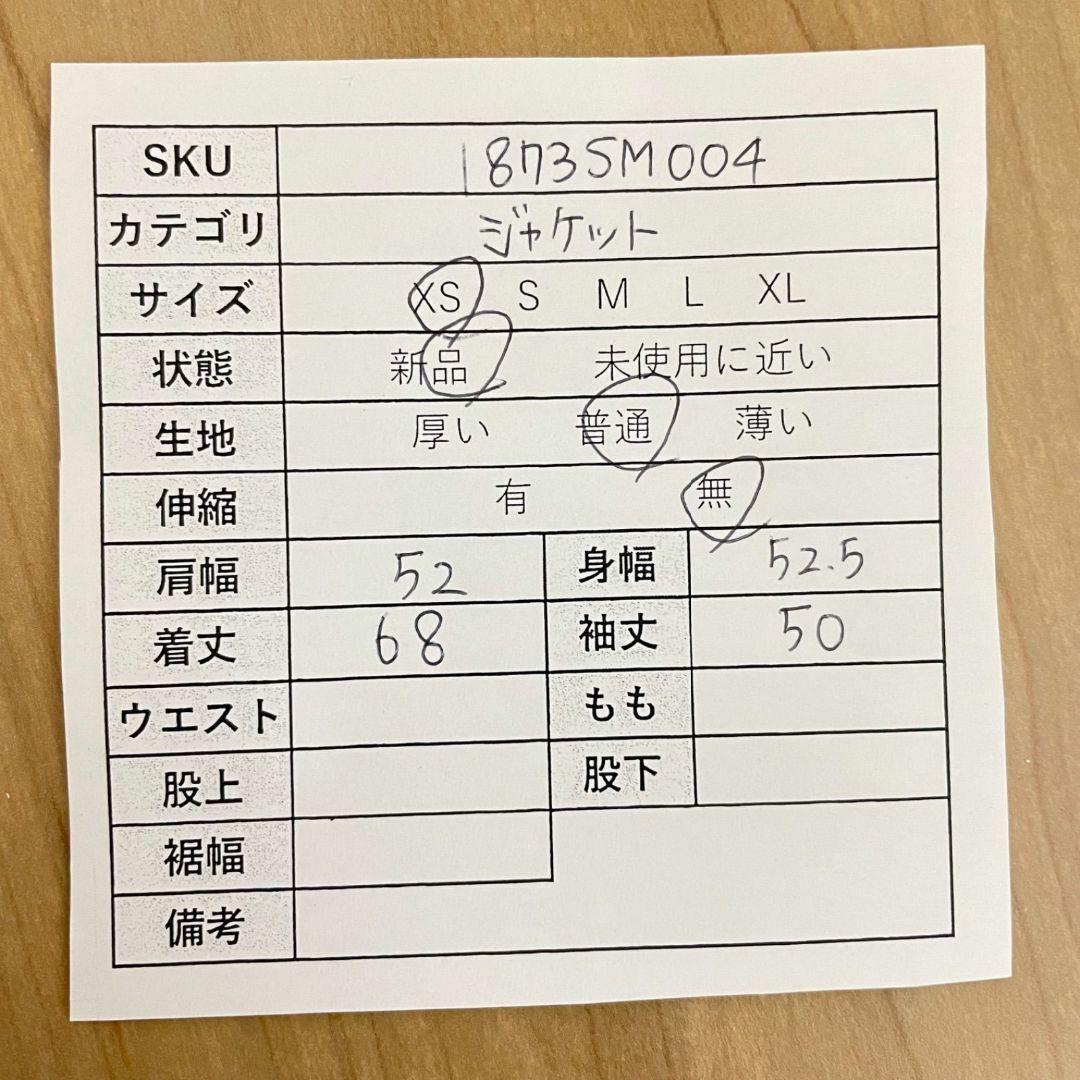 SKU 18735M004
カテゴリ ジャケット
サイズ XS S M L XL
状態 新品 未使用に近い
生地 厚い 普通 薄い
伸縮 有 無
肩幅 52 身幅 52.5
着丈 68 袖丈 50
ウエスト もも
股上 股下
裾幅
備考